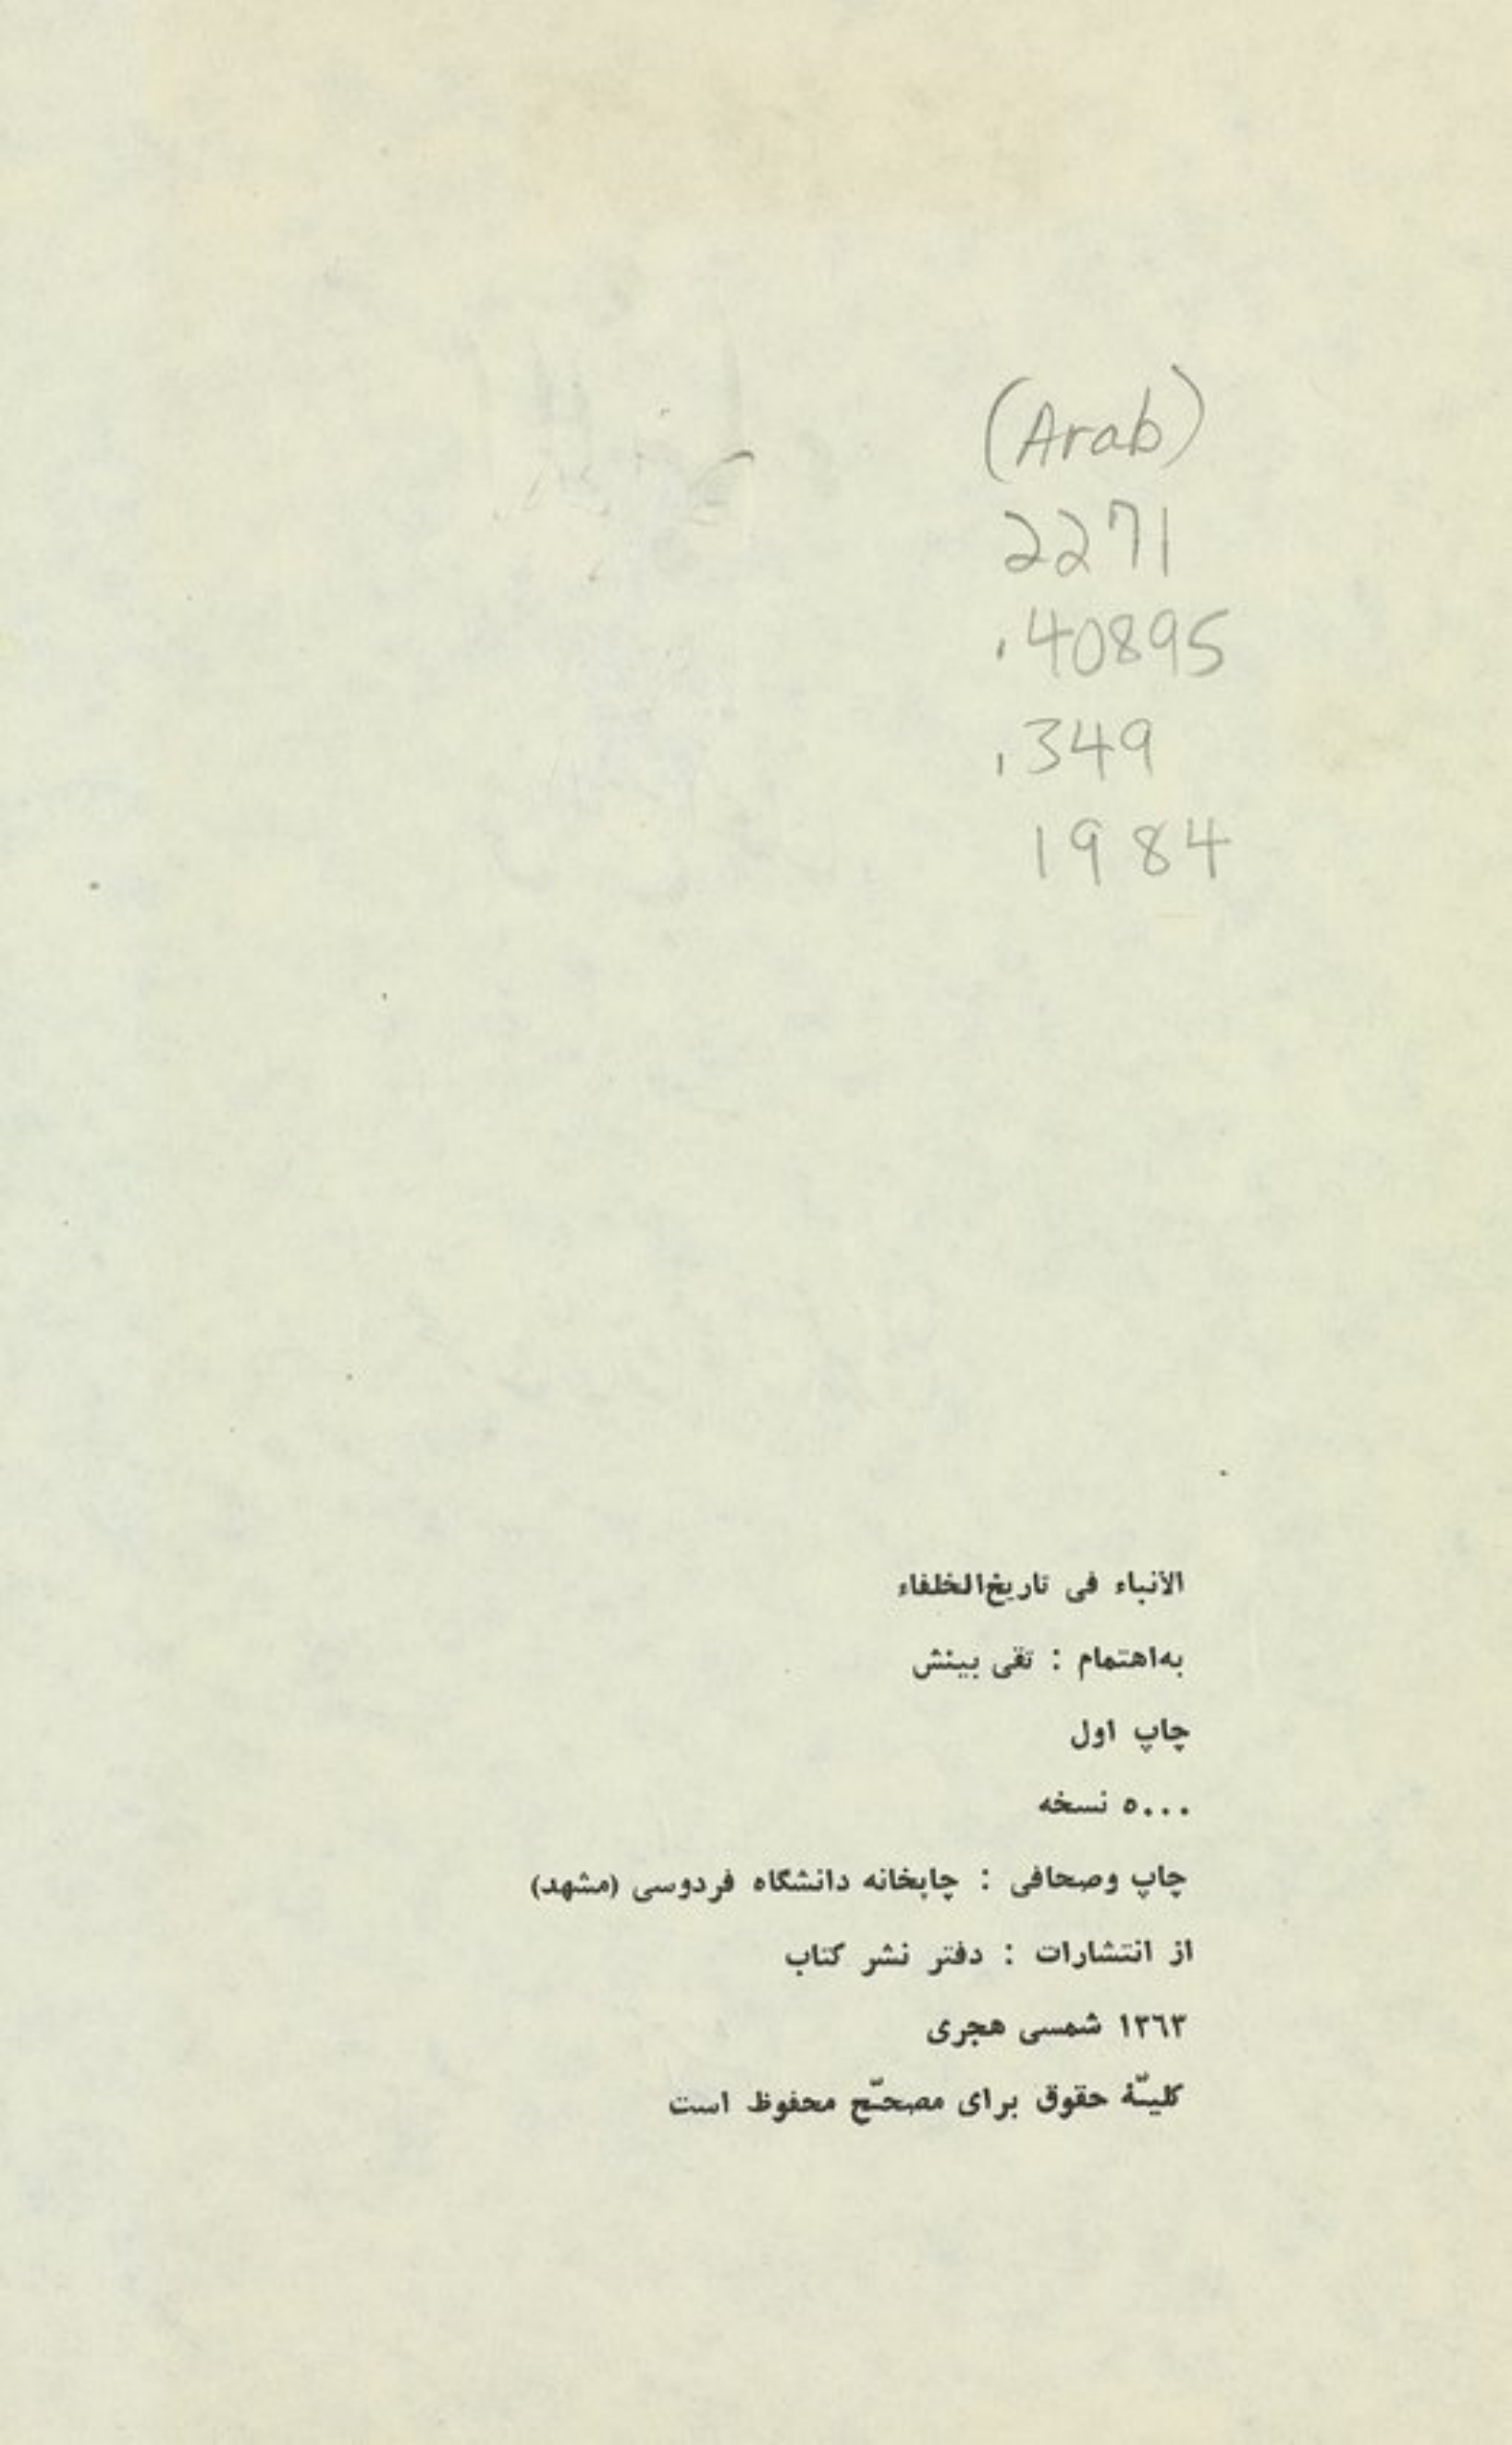 (Arab)
2271
.40895
.349
1984
الأنباء فی تاریخ‌الخلفاء
به‌اهتمام : تقی بینش
چاپ اول
٥٠٠٠ نسخه
چاپ وصحافی : چاپخانه دانشگاه فردوسی (مشهد)
از انتشارات : دفتر نشر کتاب
١٣٦٣ شمسی هجری
کلیّهٔ حقوق برای مصحّح محفوظ است